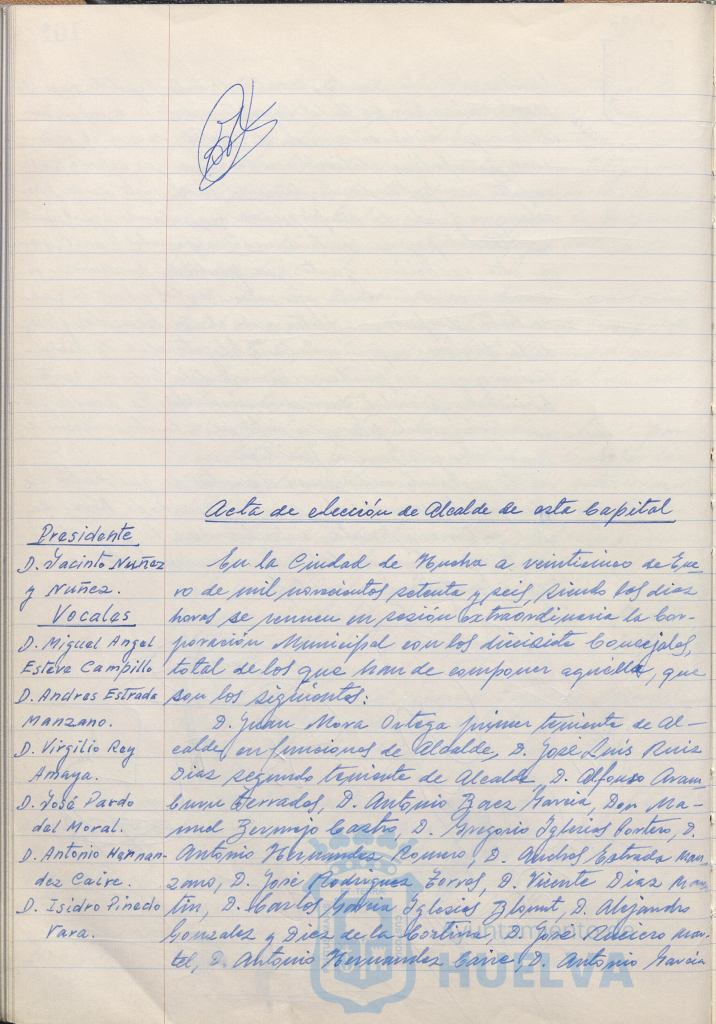 Acta de elección de Alcalde de esta Capital
Presidente
D. Jacinto Nuñez
y Nuñez.
Vocales
D. Miguel Angel
Esteve Campillo
D. Andres Estrada
Manzano.
D. Virgilio Rey
Amaya.
D. José Pardo
del Moral.
D. Antonio Hernan-
dez Caire.
D. Isidro Pinedo
Vara.
En la Ciudad de Huelva a veinticinco de Ene-
ro de mil novecientos setenta y seis, siendo las diez
horas se reunen en sesión extraordinaria la Cor-
poración Municipal con los diecisiete Concejales,
total de los que han de componer aquella, que
son los siguientes:
D. Juan Mora Ortega primer teniente de Al-
calde, en funciones de Alcalde, D. José Luis Ruiz
Diaz segundo teniente de Alcalde, D. Alfonso Aram-
buru Terrados, D. Antonio Baez Garcia, Don Ma-
nuel Bermejo Castro, D. Gregorio Iglesias Portero, D.
Antonio Hernandez Romero, D. Andres Estrada Man-
zano, D. José Rodriguez Torres, D. Vicente Diaz Mar-
tin, D. Carlos Garcia Iglesias D. Alejandro
Gonzalez y Diez de la Cortina, D. José Mar-
tel, D. Antonio Hernandez Caire, D. Antonio Garcia
Ayuntamiento de
HUELVA